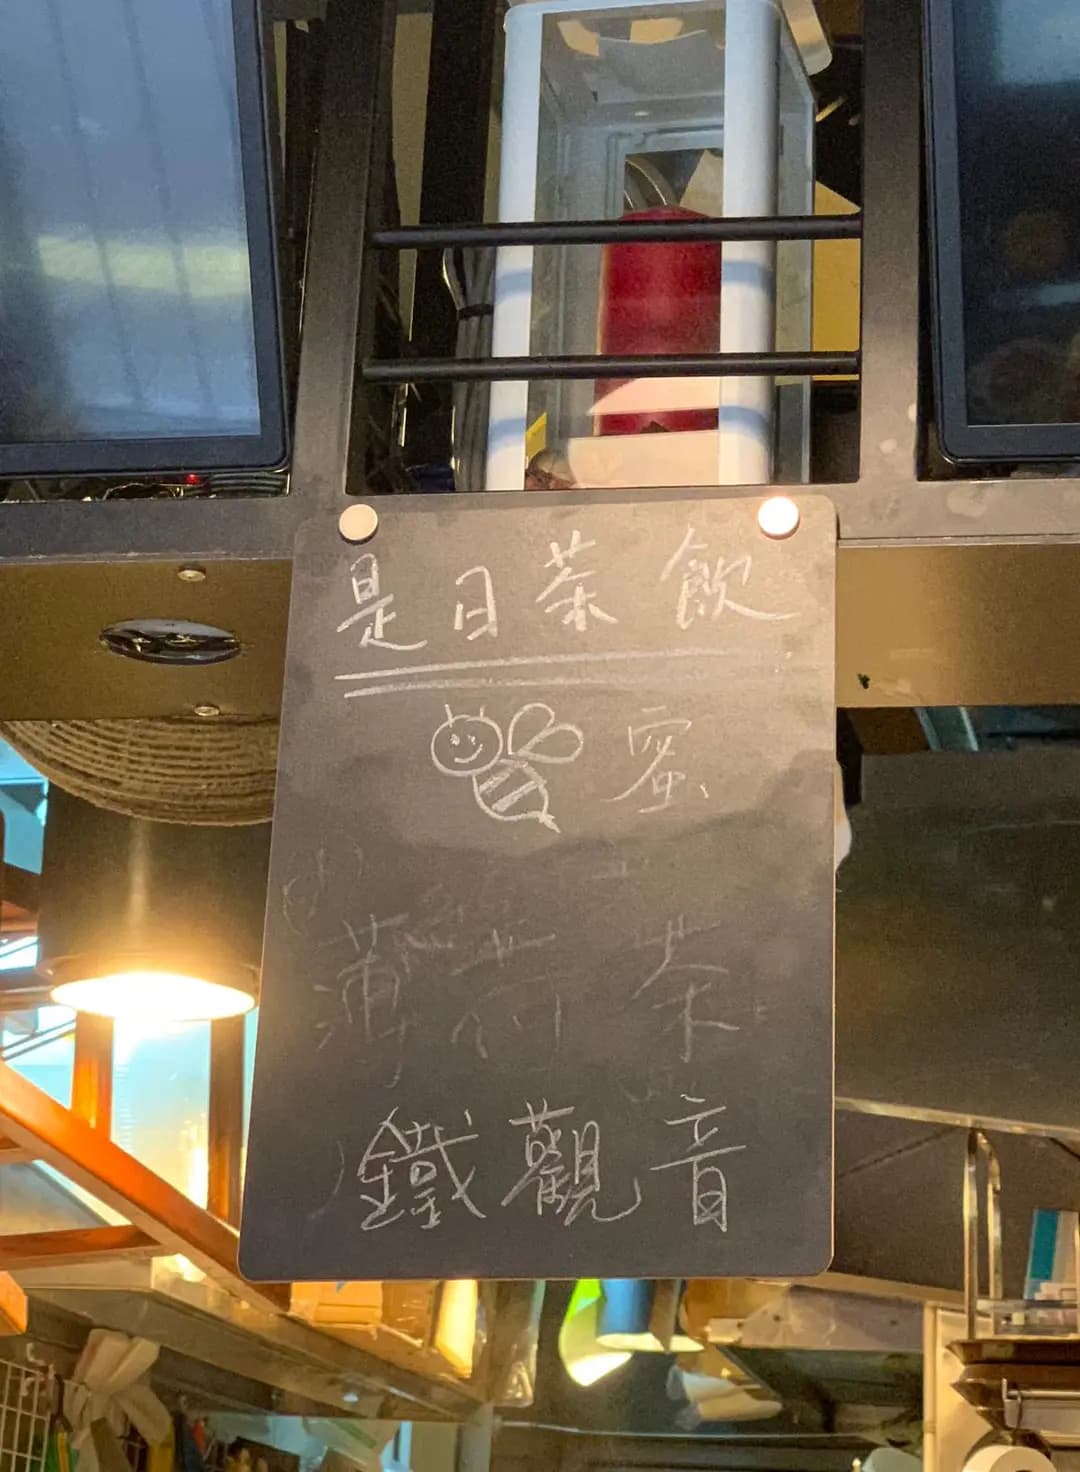 是日茶飲
蜜
薄荷茶
鐵觀音